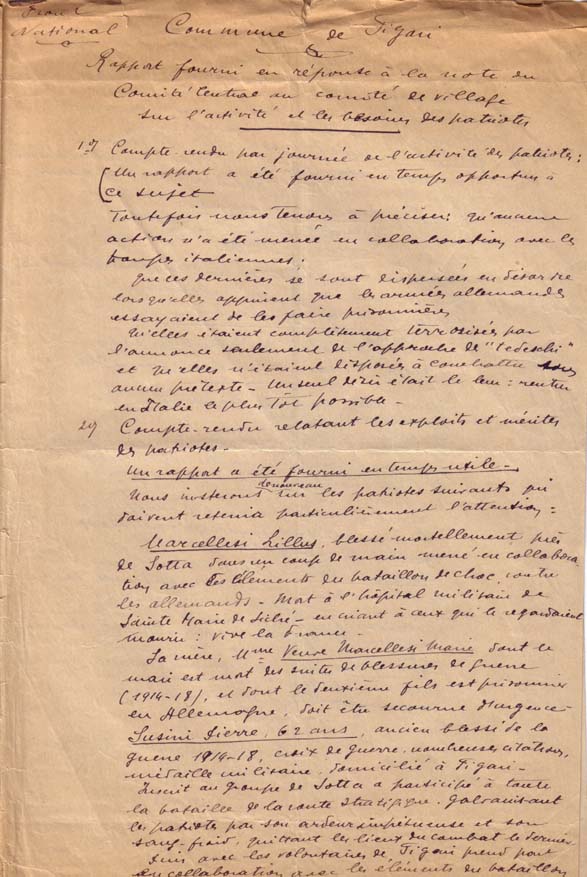 Front
National
Commune de Figari
Rapport fourni en réponse à la note du
Comité Central au comité de village
sur l'activité et les besoins des patriotes
1°/ Compte-rendu par journée de l'activité des patriotes :
Un rapport a été fourni en temps opportun à
ce sujet
Toutefois nous tenons à préciser : qu'aucune
action n'a été menée en collaboration avec les
troupes italiennes.
Que ces dernières se sont dispersées en désordre
lorsqu'elles apprirent que les armées allemandes
essayaient de les faire prisonnières
Qu'elles étaient complètement terrorisées par
l'annonce seulement de l'approche de "tedeschi"
et qu'elles n'étaient disposées à combattre sous
aucun prétexte - Un seul désir était le leur : rentrer
en Italie le plus tôt possible -
2°/ Compte-rendu relatant les exploits et mérites
des patriotes -
Un rapport a été fourni en temps utile -
de nouveau
Nous insisterons sur les patriotes suivants qui
doivent retenir particulièrement l'attention :
Marcellesi Lillus, blessé mortellement près
de Sotta dans un coup de main mené en collabora
tion avec les éléments du bataillon de choc, contre
les allemands - Mort à l'hôpital militaire de
Sainte Marie de Siché - en criant à ceux qui le regardaient
mourir : vive la France -
Sa mère, Mme Veuve Marcellesi Marie dont le
mari est mort des suites de blessures de guerre
(1914-18), et dont le deuxième fils est prisonnier
en Allemagne, doit être secourue d'urgence -
Susini Pierre, 62 ans, ancien blessé de la
guerre 1914-18, croix de guerre, nombreuses citations,
médaille militaire, domicilié à Figari -
Inscrit au groupe de Sotta a participé à toute
la bataille de la route stratégique. Galvanisant
les patriotes par son ardeur impétueuse et son
sang-froid, quittant les lieux du combat le dernier
Puis avec les volontaires de Figari prend part
en collaboration avec les éléments du bataillon